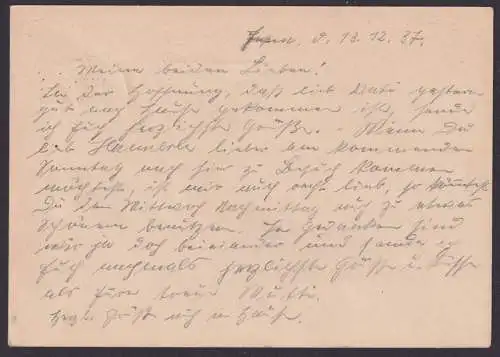 d. 13.12.37.
Meine beiden Lieben!
In der Hoffnung, daß lieb Vati gestern
gut nach Hause gekommen ist, sende
ich Euch herzlichste Grüße. - Wenn Du
lieb lieber am kommenden
Sonntag nach hier zu Besuch kommen
möchtest, ist mir auch recht lieb, so könntest
Du den Mittwoch Nachmittag noch zu etwas
Schönem benutzen. In Gedanken sind
wir ja doch beieinander und sende ich
Euch nochmals herzlichste Grüße u. Küsse
als Eure treue Mutti.
Herzl. Grüße auch im Hause.